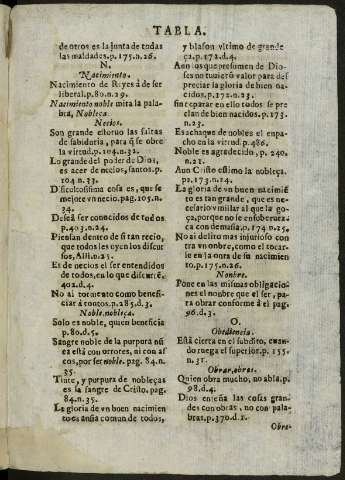 TABLA.
de otros es la junta de todas
las maldades.p.175.n.26.
N.
Nacimiento.
Nacimiento de Reyes à de ser
liberal.p.80.n.29.
Nacimiento noble mira la pala-
bra, Nobleça
Necios.
Son grande estoruo las faltas
de sabiduria, para q̃ se obre
la virtud.p.104.n.32.
Lo grande del poder de Dios,
es acer de necios, santos.p.
104.n.33.
Dificoltosissima cosa es, que se
mejore vn necio.pag.105.n.
34.
Deseã ser conocidos de todos
p.403.n.24.
Piensan dentro de si tan recio,
que todos les oyen los discur
sos, Alli.n.25.
Es de necios el ser entendidos
de todos, en lo que discurrẽ.
402.d.4.
No ai tormento como benefi-
ciar à tontos.n.285.d.3.
Noble, nobleça.
Solo es noble, quien beneficia
p.80.d.5.
Sangre noble de la purpura nũ
ca està con orrores, ni con as
cos, por ser noble. pag. 84.n.
35.
Tinte, y purpura de nobleças
es la sangre de Cristo. pag.
84.n.35.
La gloria de vn buen nacimien
to es ansia comun de todos,
y blason vltimo de grande
ça.p.172.d.4.
Aun los que presumen de Dio-
ses no tuuierõ valor para des
preciar la gloria de bien na-
cidos.p.172.n.23.
sin reparar en ello todos se pre
cian de bien nacidos.p.173.
n.23.
Es achaque de nobles el enpa-
cho en la virtud.p.486.
Noble es agradecido, p. 240.
n.21.
Aun Cristo estimo la nobleça.
p.173.n.24.
La gloria de vn buen nacimiẽ
to es tan grande, que es ne-
cesario vmillar al que la go-
ça, porque no se ensoberuez-
ca con demasia.p.174.n.25.
No ai delito mas injurioso con
tra vn onbre, como el tocar-
le en la onra de su nacimien
to.p.175.n.26.
Nonbre.
Pone en las mismas obligacio-
nes el nonbre que el ser, pa-
ra obrar conforme à el pag.
96.d.3.
O.
Obediencia.
Està cierta en el subdito, cuan-
do ruega el superior.p.155.
n.31.
Obrar, obras.
Quien obra mucho, no abla.p.
98.d.4.
Dios enseña las cosas gran-
des con obras, no con pala-
bras.p.370.d.1.
Obra-